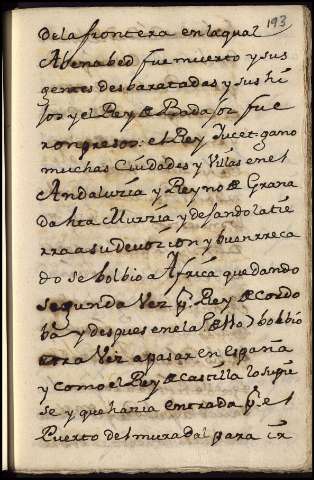 193
De la frontera en la qual
Abenabed fue muerto y sus
gentes desbaratadas y sus hi
jos y el Rey de Badajoz fue
ron presos: el Rey Jucef gano
muchas Ciudades y Villas en el
Andaluzia y Reyno de Grana
da hta Murzia y dejando la tie
rra a su devozion y buen reca
do se bolbio a Africa quedando
segunda Vez pr. Rey de Cordo
ba y despues en el a bolbio
otra Vez a pasar en España
y como el Rey de Castilla lo supie
se y que hazia entrada pr. el
Puerto del muradal para ir